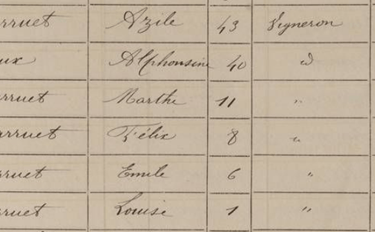 rruet Azile 43 Vigneron
ux Alphonsine 40 d
rruet Marthe 11 "
arruet Félix 8 "
rruet Emile 6 "
rruet Louise 1 "